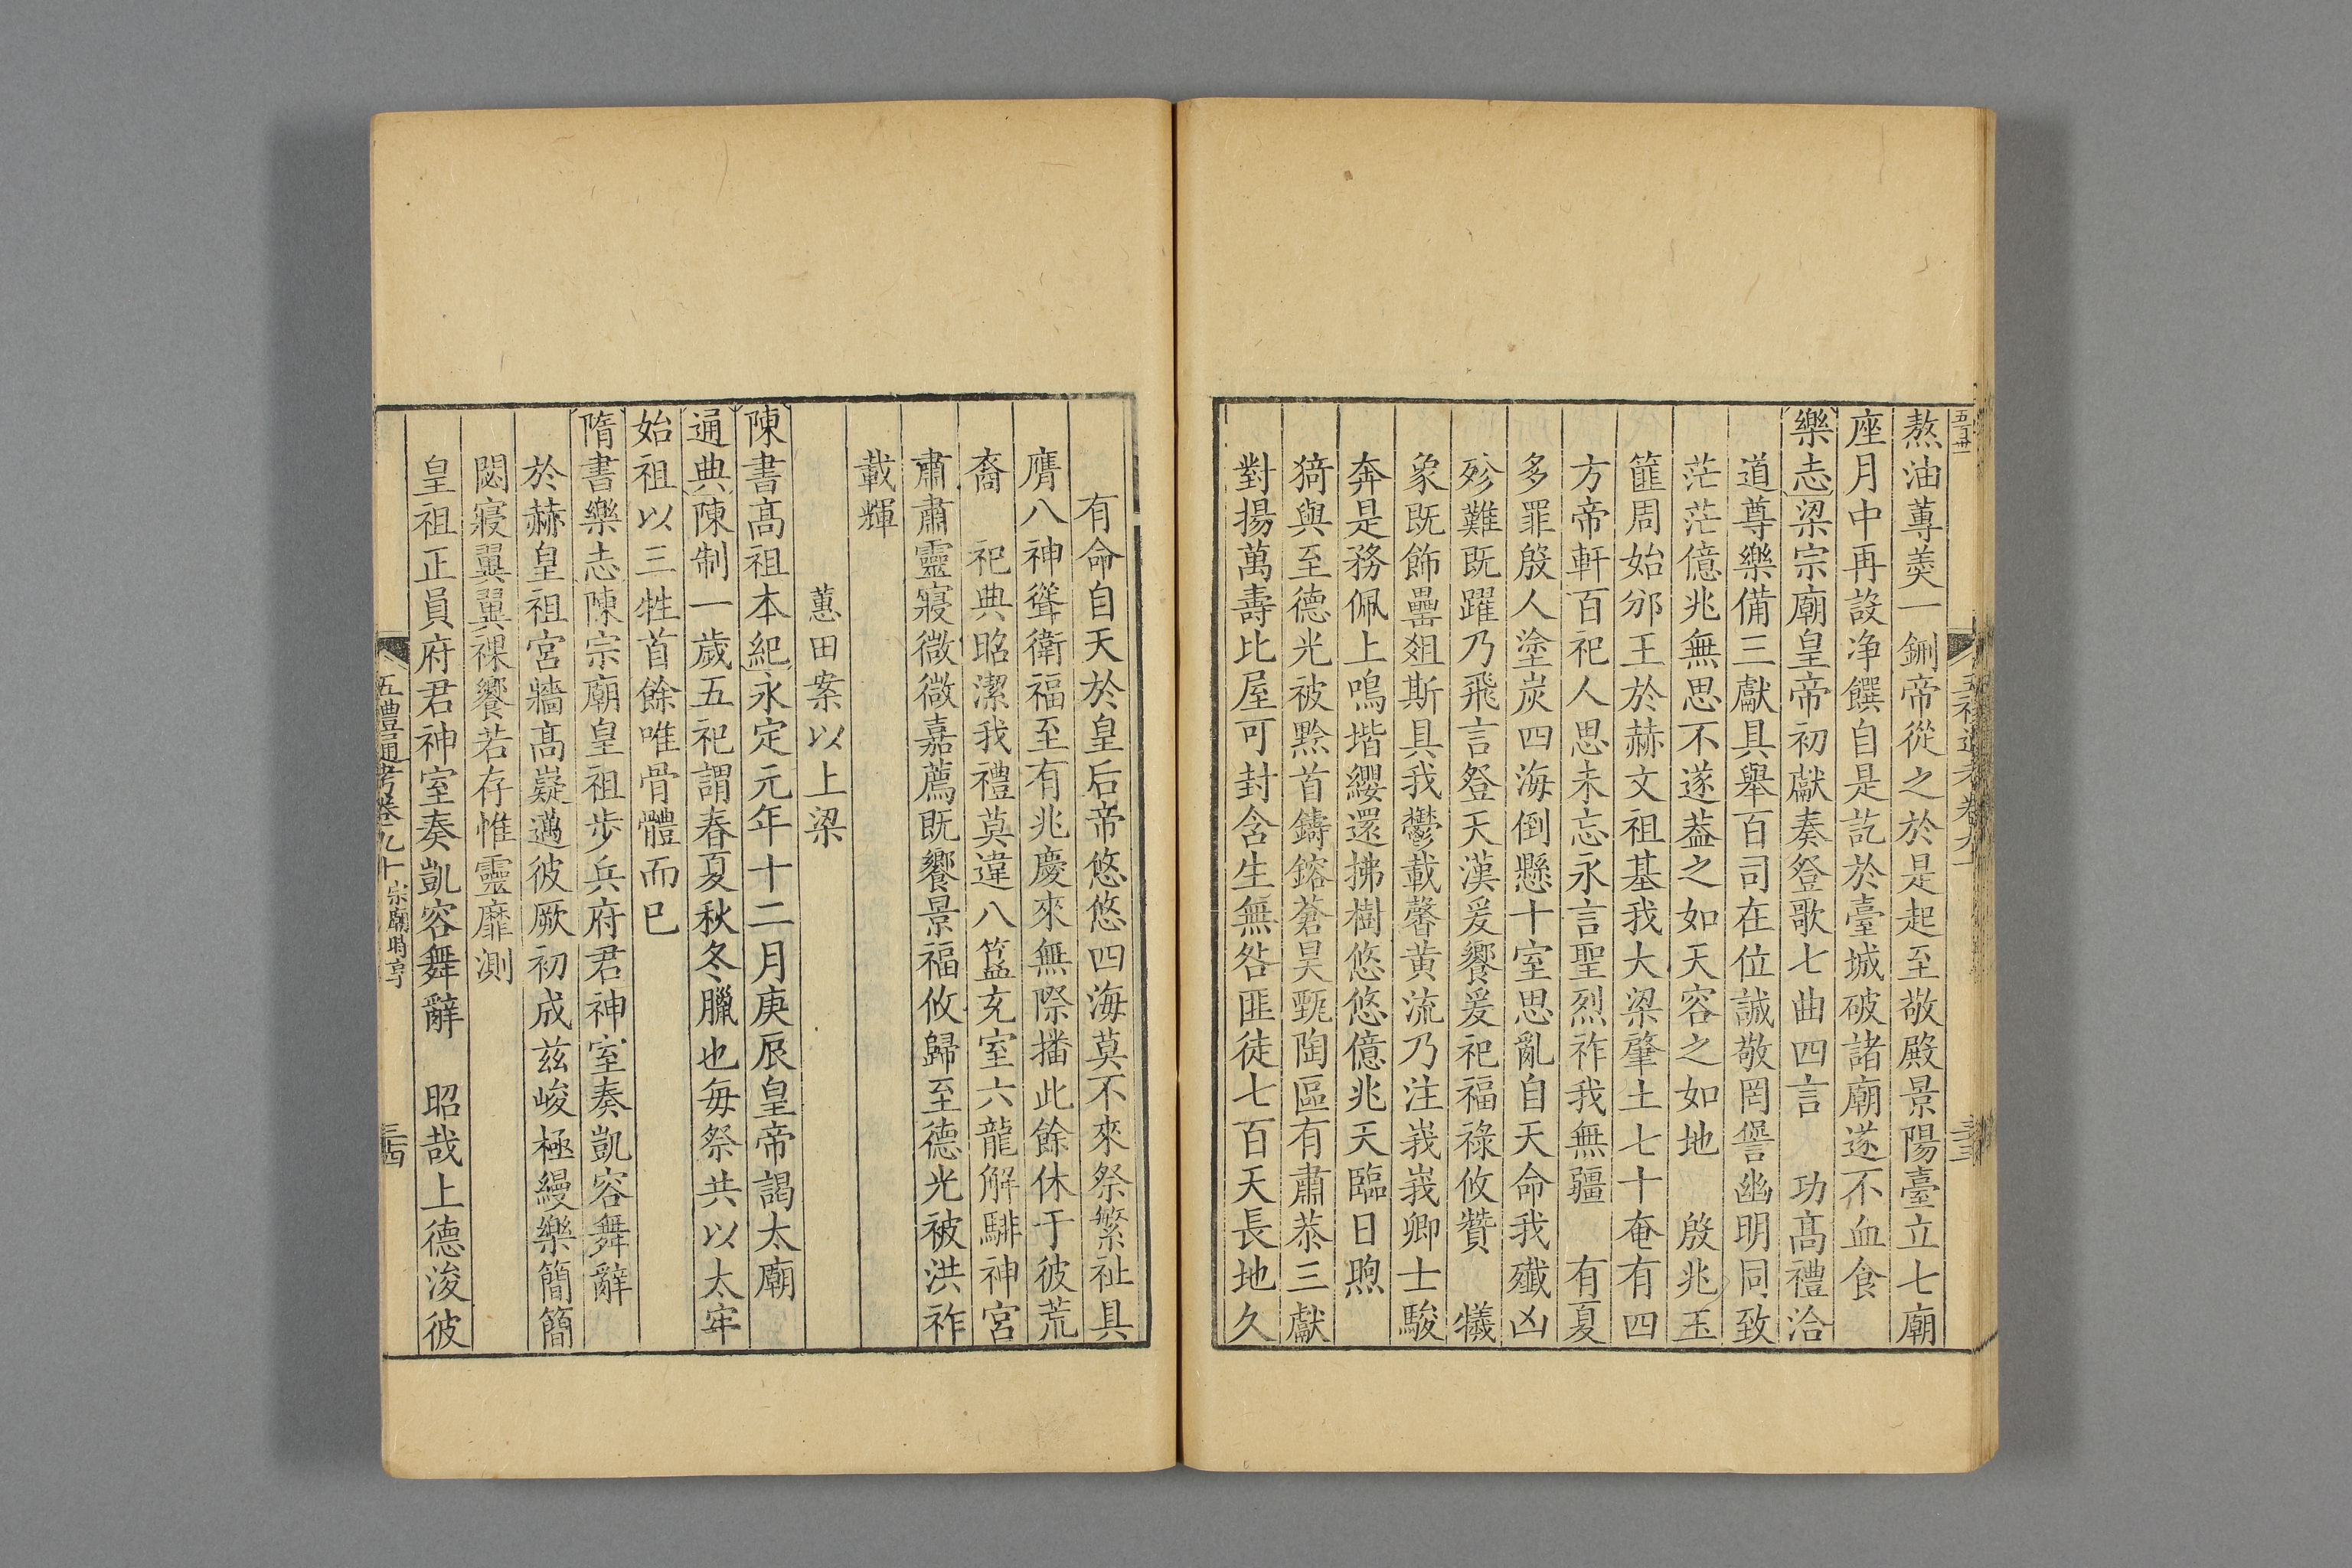 五百廿
五禮通考卷九十
三十三
熬油蓴羮一鉶帝從之於是起至敬殿景陽臺立七廟
座月中再設净饌自是訖於臺城破諸廟遂不血食
樂志梁宗廟皇帝初獻奏登歌七曲四言　功髙禮洽
道尊樂備三獻具舉百司在位誠敬罔諐幽明同致
茫茫億兆無思不遂葢之如天容之如地　殷兆玉
筐周始邠王於赫文祖基我大梁肇土七十奄有四
方帝軒百祀人思未忘永言聖烈祚我無疆　有夏
多罪殷人塗炭四海倒懸十室思亂自天命我殲凶
殄難既躍乃飛言登天漢爰饗爰祀福祿攸贊　犧
象既飾罍爼斯具我鬱載馨黄流乃注峩峩卿士駿
奔是務佩上鳴堦纓還拂樹悠悠億兆天臨日煦
猗與至德光被黔首鑄鎔蒼昊甄陶區有肅恭三獻
對揚萬壽比屋可封含生無咎匪徒七百天長地久
有命自天於皇后帝悠悠四海莫不來祭繁祉具
膺八神聳衛福至有兆慶來無際播此餘休于彼荒
裔　祀典昭潔我禮莫違八簋充室六龍解騑神宮
肅肅靈寢微微嘉薦既饗景福攸歸至德光被洪祚
載輝
蕙田案以上梁
陳書髙祖本紀永定元年十二月庚辰皇帝謁太廟
通典陳制一歲五祀謂春夏秋冬臘也每祭共以太牢
始祖以三牲首餘唯骨體而已
隋書樂志陳宗廟皇祖步兵府君神室奏凱容舞辭
於赫皇祖宮牆髙嶷邁彼厥初成兹峻極縵樂簡簡
閟寢翼翼祼饗若存惟靈靡測
皇祖正員府君神室奏凱容舞辭　昭哉上德浚彼
五禮通考卷九十　宗廟時享
三十四